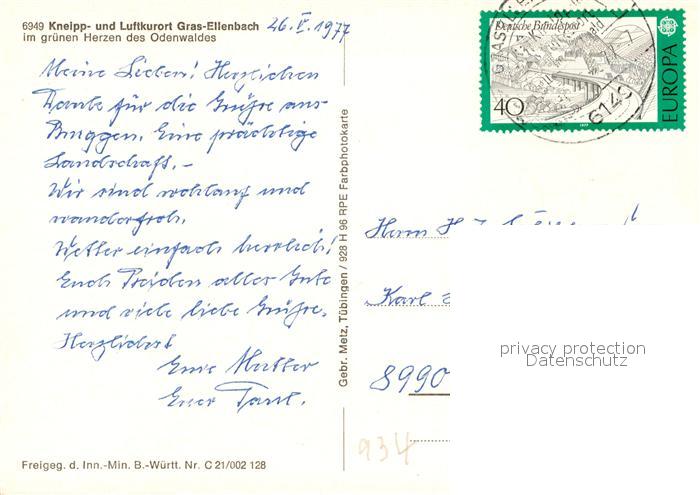 6949 Kneipp- und Luftkurort Gras-Ellenbach
im grünen Herzen des Odenwaldes
26. V. 1977
Meine Lieben! Herzlichen
Dank für die Grüsse aus
Bruggen. Eine prächtige
Landschaft.-
Wir sind wohlauf und
wanderfroh.
Wetter einfach herrlich!
Euch Beiden alles Gute
und viele liebe Grüsse.
Herzlichst
Eure Mutter
Euer
Freigeg. d. Inn.-Min. B.-Württ. Nr. C 21/002 128
Gebr. Metz, Tübingen / 923 H 96 RPE Farbphotokarte
Deutsche Bundespost
40
EUROPA
6149
Herrn H
Karl
8990
934
privacy protection
Datenschutz